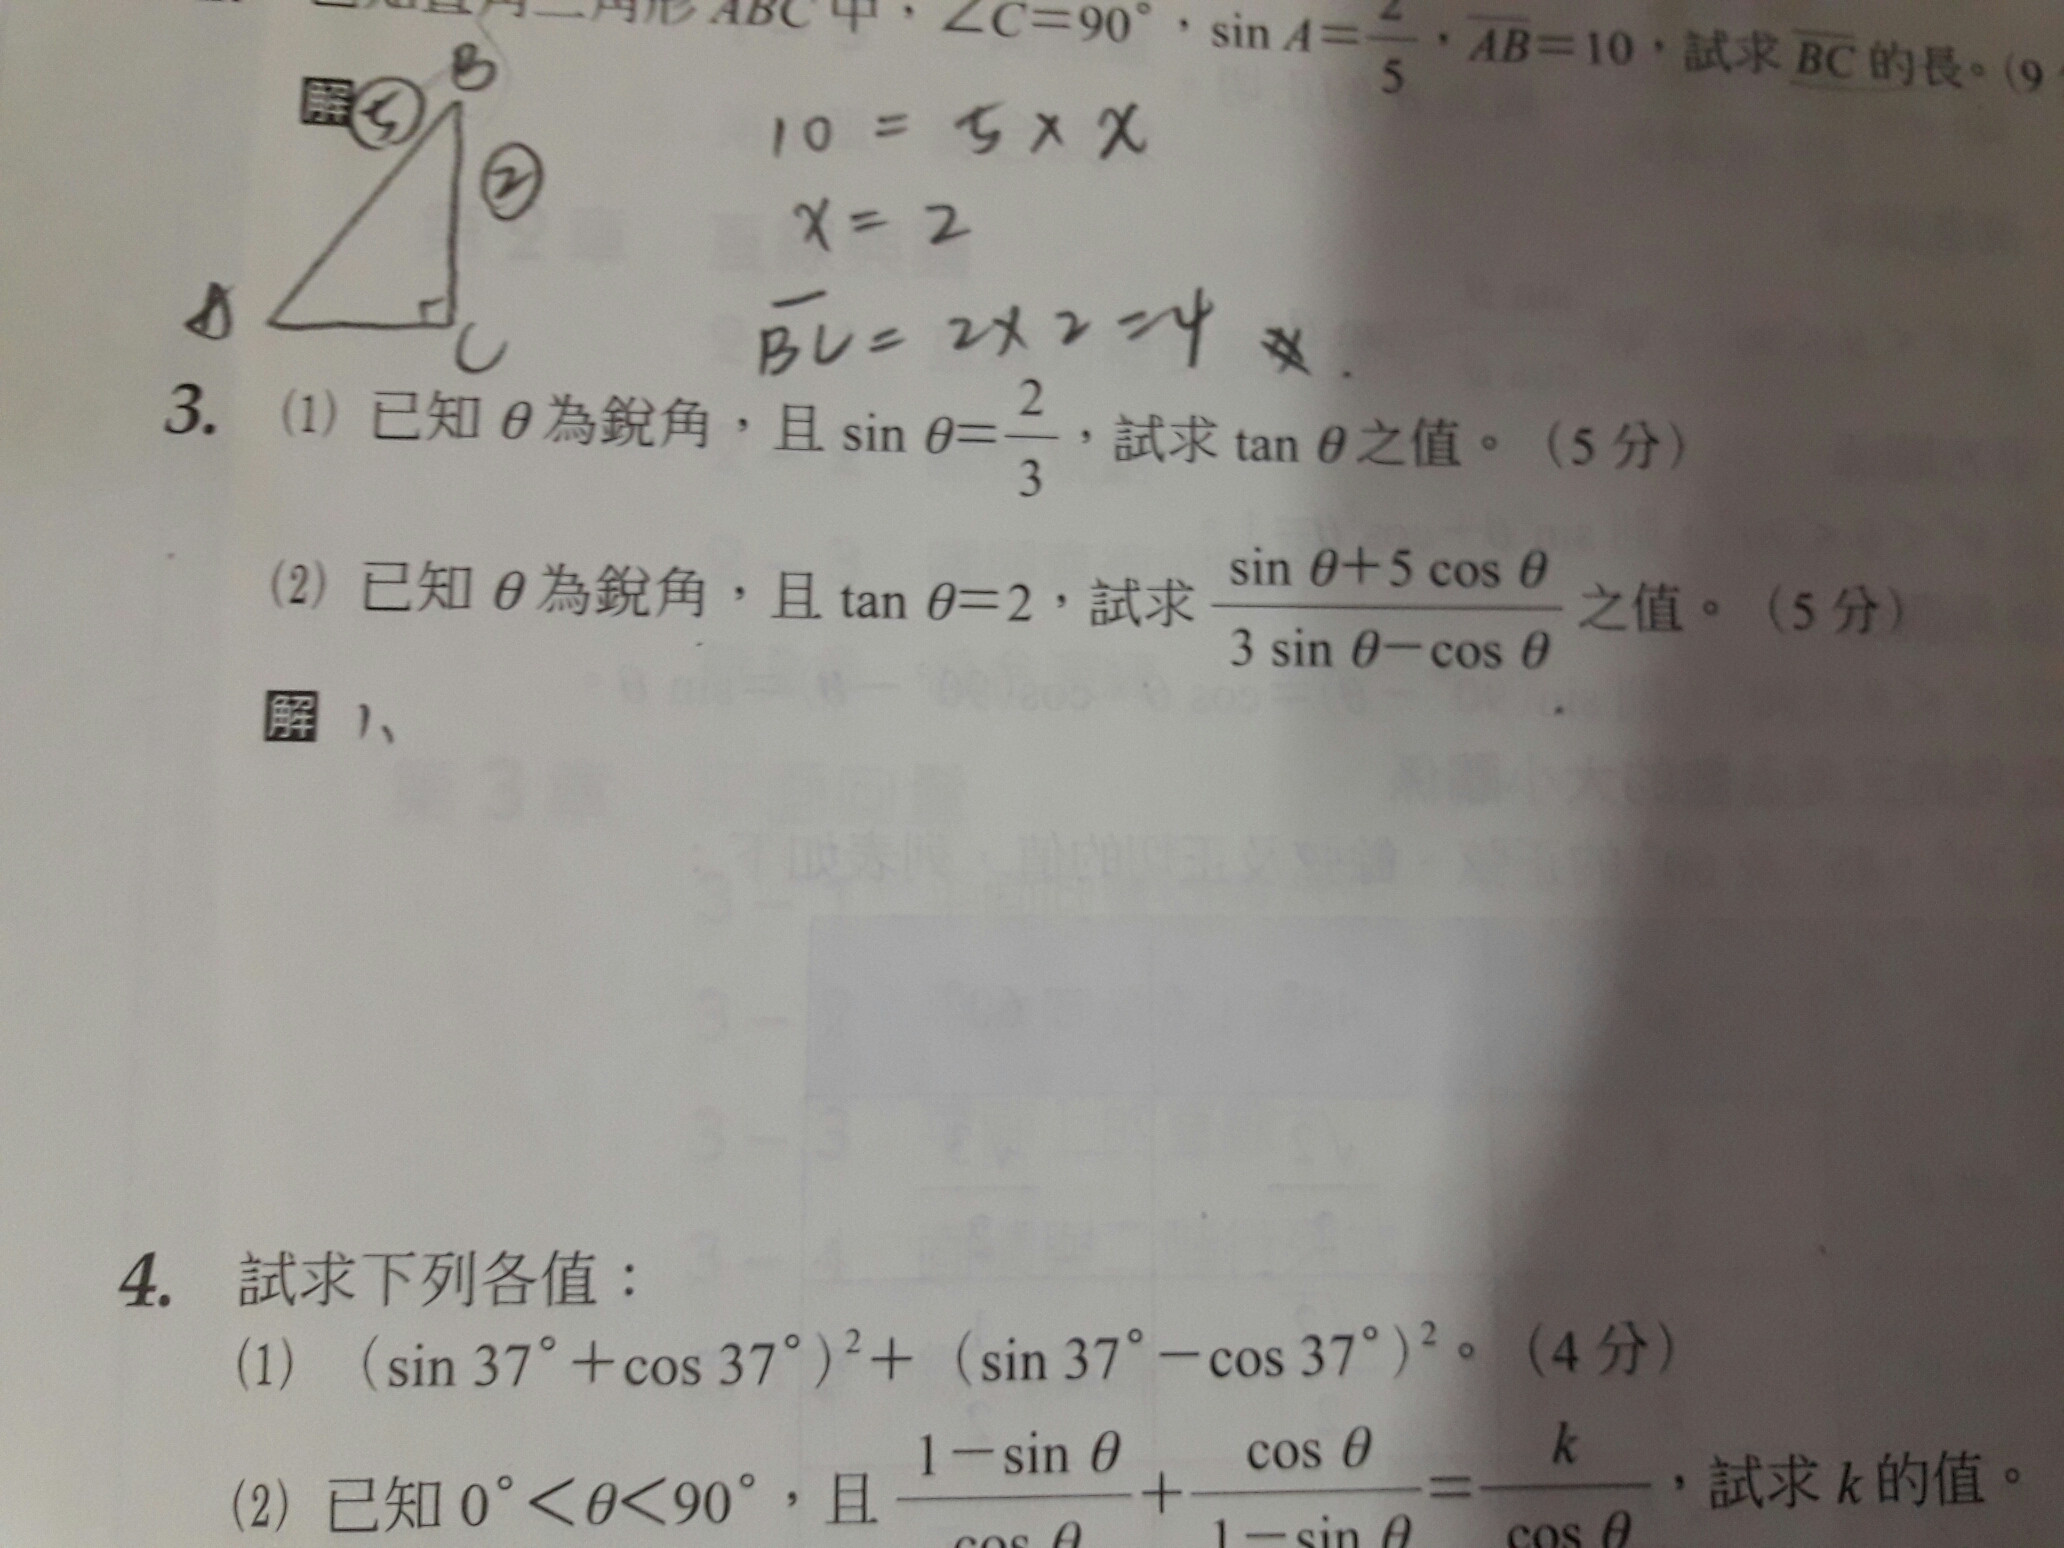 角三角形 ABC 中，∠C=90°，sin A=2/5，AB=10，試求 BC 的長。(9
解
B
⑤
②
A
C
10 = 5 × x
x = 2
BC = 2 × 2 = 4
3. (1) 已知 θ 為銳角，且 sin θ=2/3，試求 tan θ 之值。(5 分)
(2) 已知 θ 為銳角，且 tan θ=2，試求 (sin θ+5 cos θ)/(3 sin θ−cos θ) 之值。(5 分)
解 1、
4. 試求下列各值：
(1) (sin 37°+cos 37°)²+(sin 37°−cos 37°)²。(4 分)
(2) 已知 0°<θ<90°，且 (1−sin θ)/(cos θ)+(cos θ)/(1−sin θ)=k/(cos θ)，試求 k 的值。